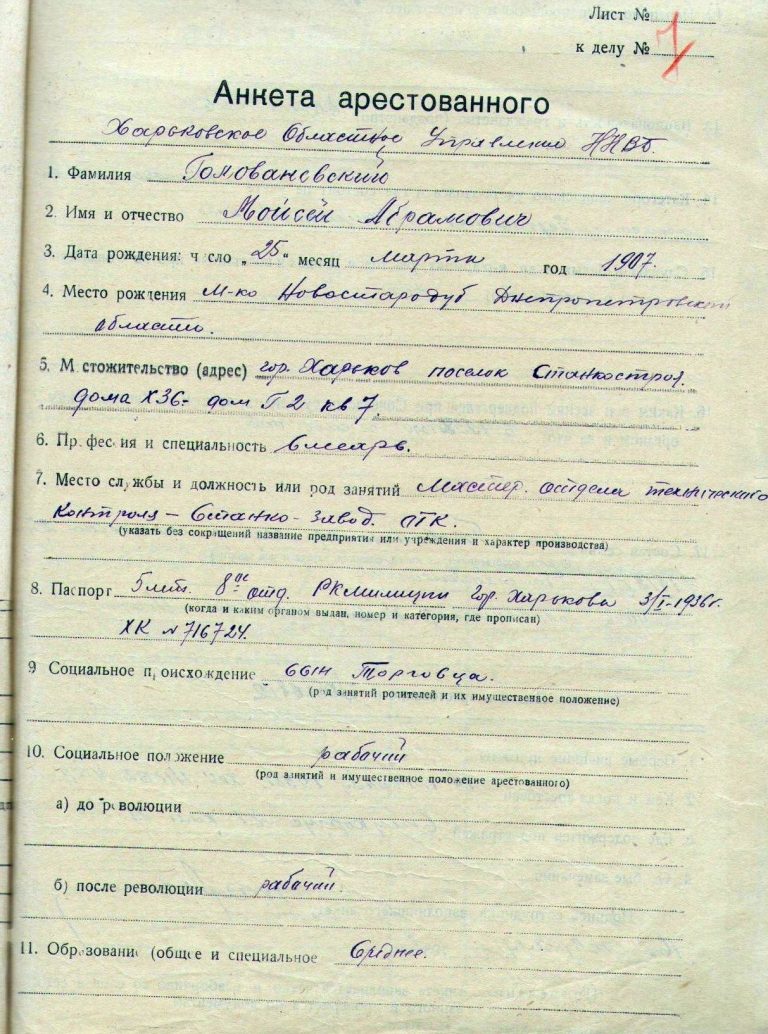 Лист №
к делу № 7
Анкета арестованного
Харьковское Областное Управление НКВД
1. Фамилия Головановский
2. Имя и отчество Мойсей Абрамович
3. Дата рождения: число „25“ месяц марта год 1907.
4. Место рождения М-ко Новостародуб Днепропетровской
области.
5. М стожительство (адрес) гор. Харьков поселок Станкостроя.
дома ХЭС- дом Г2 кв 7.
6. Пр фес ия и специальность слесарь.
7. Место службы и должность или род занятий Мастер. отдела технического
контроля – Станко-завод. ОТК.
(указать без сокращений название предприятия или учреждения и характер производства)
8. Паспорт 5 лет. 8ое отд. РКмилиции гор. Харькова 3/I-1936г.
(когда и каким органом выдан, номер и категория, где прописан)
ХК №716724.
9 Социальное п оисхождение сын Торговца.
(род занятий родителей и их имущественное положение)
10. Социальное положение рабочий
(род занятий и имущественное положение арестованного)
а) до революции
б) после революции рабочий.
11. Образование (общее и специальное Среднее.